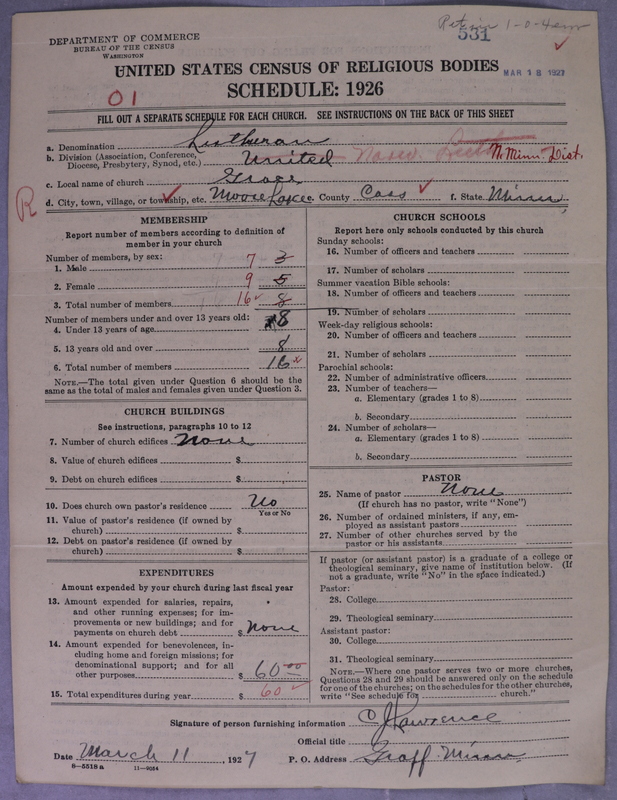 DEPARTMENT OF COMMERCE
BUREAU OF THE CENSUS
WASHINGTON
1-0-4
531
UNITED STATES CENSUS OF RELIGIOUS BODIES
MAR 18 1927
SCHEDULE: 1926
01
FILL OUT A SEPARATE SCHEDULE FOR EACH CHURCH. SEE INSTRUCTIONS ON THE BACK OF THIS SHEET
a. Denomination Lutheran
b. Division (Association, Conference, Diocese, Presbytery, Synod, etc.) United Norw. Luth N. Minn. Dist.
c. Local name of church Grace
R
d. City, town, village, or township, etc. Moose Lake e. County Cass ✓ f. State Minn,
MEMBERSHIP
Report number of members according to definition of
member in your church
Number of members, by sex:
1. Male 7 3
2. Female 9 5
3. Total number of members 16 ✓ 8
Number of members under and over 13 years old:
4. Under 13 years of age 8
5. 13 years old and over 8
6. Total number of members 16 x
NOTE.—The total given under Question 6 should be
same as the total of males and females given under Question 3.
CHURCH BUILDINGS
See instructions, paragraphs 10 to 12
7. Number of church edifices None
8. Value of church edifices $
9. Debt on church edifices $
10. Does church own pastor's residence No
Yes or No
11. Value of pastor's residence (if owned by
church) $
12. Debt on pastor's residence (if owned by
church) $
EXPENDITURES
Amount expended by your church during last fiscal year
13. Amount expended for salaries, repairs,
and other running expenses; for im-
provements or new buildings; and for
payments on church debt $ None
14. Amount expended for benevolences, in-
cluding home and foreign missions; for
denominational support; and for all
other purposes $ 60 00
15. Total expenditures during year $ 60 ✓
CHURCH SCHOOLS
Report here only schools conducted by this church
Sunday schools:
16. Number of officers and teachers
17. Number of scholars
Summer vacation Bible schools:
18. Number of officers and teachers
19. Number of scholars
Week-day religious schools:
20. Number of officers and teachers
21. Number of scholars
Parochial schools:
22. Number of administrative officers
23. Number of teachers—
a. Elementary (grades 1 to 8)
b. Secondary
24. Number of scholars—
a. Elementary (grades 1 to 8)
b. Secondary
PASTOR
25. Name of pastor None
(If church has no pastor, write "None")
26. Number of ordained ministers, if any, em-
ployed as assistant pastors
27. Number of other churches served by the
pastor or his assistants
If pastor (or assistant pastor) is a graduate of a college or
theological seminary, give name of institution below. (If
not a graduate, write "No" in the space indicated.)
Pastor:
28. College
29. Theological seminary
Assistant pastor:
30. College
31. Theological seminary
NOTE.—Where one pastor serves two or more churches,
Questions 28 and 29 should be answered only on the schedule
for one of the churches; on the schedules for the other churches,
write "See schedule for church."
Signature of person furnishing information C J Lawrence
Official title
Date March 11, 1927 P. O. Address Graff. Minn.
8—5518 a 11—9054